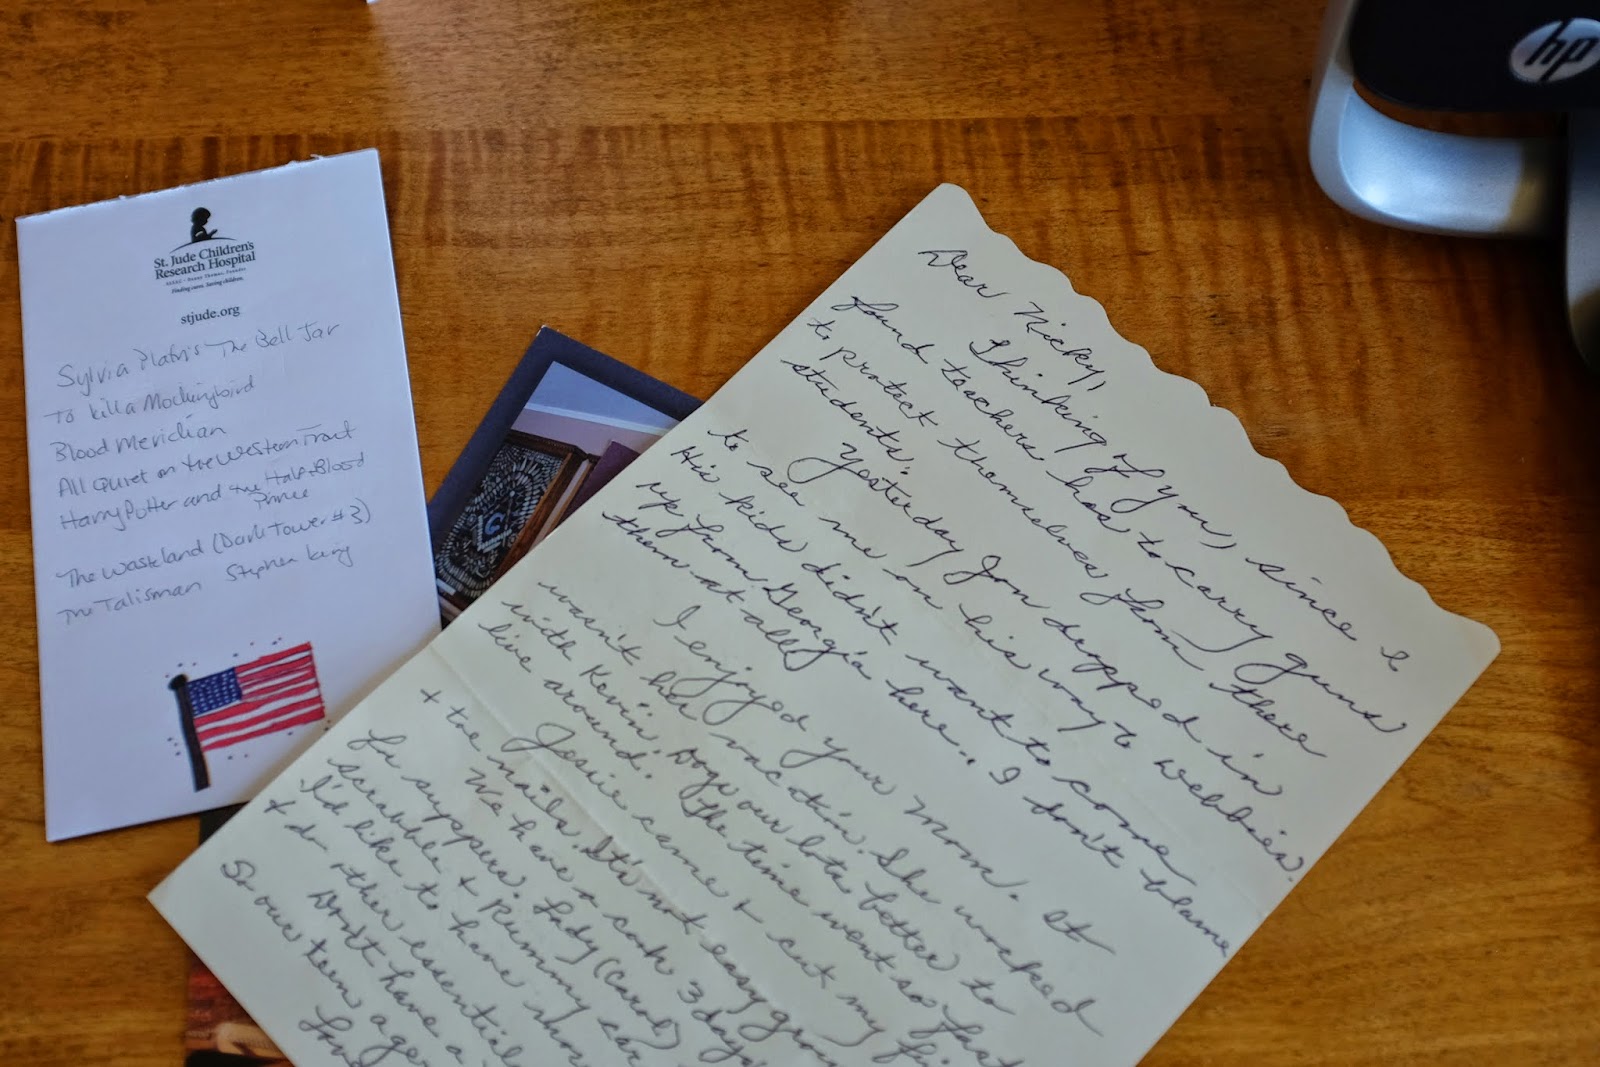 hp
St. Jude Children's
Research Hospital
Finding cures. Saving children.
stjude.org
Sylvia Plath's The Bell Jar
To Kill a Mockingbird
Blood Meridian
All Quiet on the Western Front
Harry Potter and the Half-Blood
Prince
The Wasteland (Dark Tower #3)
The Talisman Stephen King
G
Dear Nicky,
Thinking of you, since I
found teachers has to carry guns
to protect themselves from there
students.
Yesterday Jon dropped in
to see me on his way to Webbies.
His kids didn't want to come
up from Georgia here.. I don't blame
them at all
I enjoyed your Mom. It
wasn't her vacation. She worked
with Kevin. Dogs our lots better to
live around. The time went so fast
Jesie came + cut my
+ toe nails. It's not easy
We have a cook 3 days
for suppers. Lady (Carol)
scrabble + Rummy
I'd like to have
+ do other essential
Don't have a
So our teen age